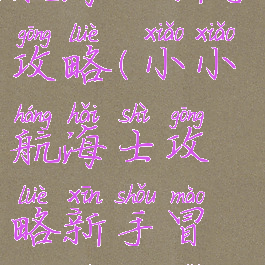 gōng lüè xiǎo xiǎo
攻略(小小
háng hǎi shì gōng
航海士攻
lüè xīn shǒu mào
略新手冒